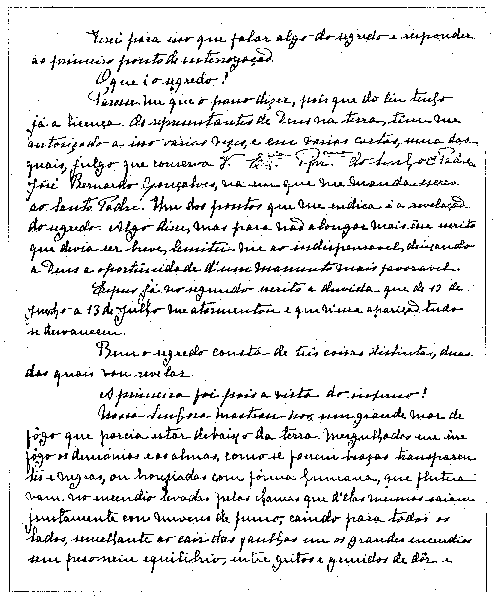 Terei para isso que falar algo do segredo e responder
ao primeiro ponto de interrogação.
O que é o segredo?
Parece-me que o posso dizer, pois que do Ceu tenho
já a licença. Os representantes de Deus na terra, têm-me
autorizado a isso varias vezes, e em varias cartas, uma das
quais, julgo que conserva V. do Senhor Padre
José Bernardo Gonçalves, na em que me manda escrever
ao Santo Padre. Um dos pontos que me indica é a revelação
do segredo. Algo disse, mas para não alongar mais esse escrito
que devia ser breve, limitei-me ao indispensavel, deixando
a Deus a oportunidade d'um momento mais favoravel.
Expus já no segundo escrito a duvida que de 13 de
Junho a 13 de Julho me atormentou e que n'essa aparição tudo
se desvaneceu.
Bem o segredo consta de três coisas distintas, duas
das quais vou revelar.
A primeira foi pois a vista do inferno!
Nossa Senhora mostrou-nos um grande mar de
fôgo que parcia estar debaixo da terra. Mergulhados em êsse
fôgo os demonios e as almas, como se fossem brazas transparen
tes e negras, ou bronziadas com fórma humana, que flutua
vam no incendio levadas pelas chamas que d'elas mesmas saiam
juntamente com nuvens de fumo, caindo para todos os
lados, semelhante ao cair das faulhas em os grandes incendios
sem peso nem equilibrio, entre gritos e gemidos de dôr e